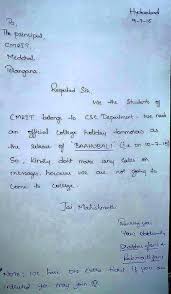 Hyderabad
9-7-15
To,
The principal,
CMRIT,
Medchal,
Telangana.
Respected Sir,
We the students of
CMRIT belongs to CSE Department. We need
an official college holiday tommorow as
the release of "BAAHUBALI" (i.e on 10-7-15)
So, kindly dont more any calls or
messages, because we are not going to
come to college.
Jai Mahishmathi
Thanking you
Yours Obediently
Note: We have one extra ticket if you are
intrested you may join